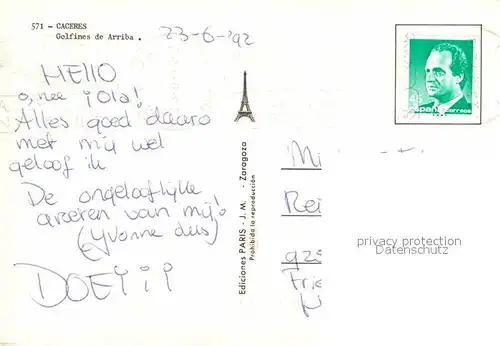 571 – CACERES
Golfines de Arriba .
23-6-'92
HELLO
o, nee ¡Ola!
Alles goed daaro
met mij wel
geloof ik
De ongelooflijke
groeten van mij!
(Yvonne dus)
DOEI¡¡
Ediciones PARIS - J. M. - Zaragoza
Prohibida la reproducción
España correos
Mi
Rei
privacy protection
Datenschutz
gze
Frie
N